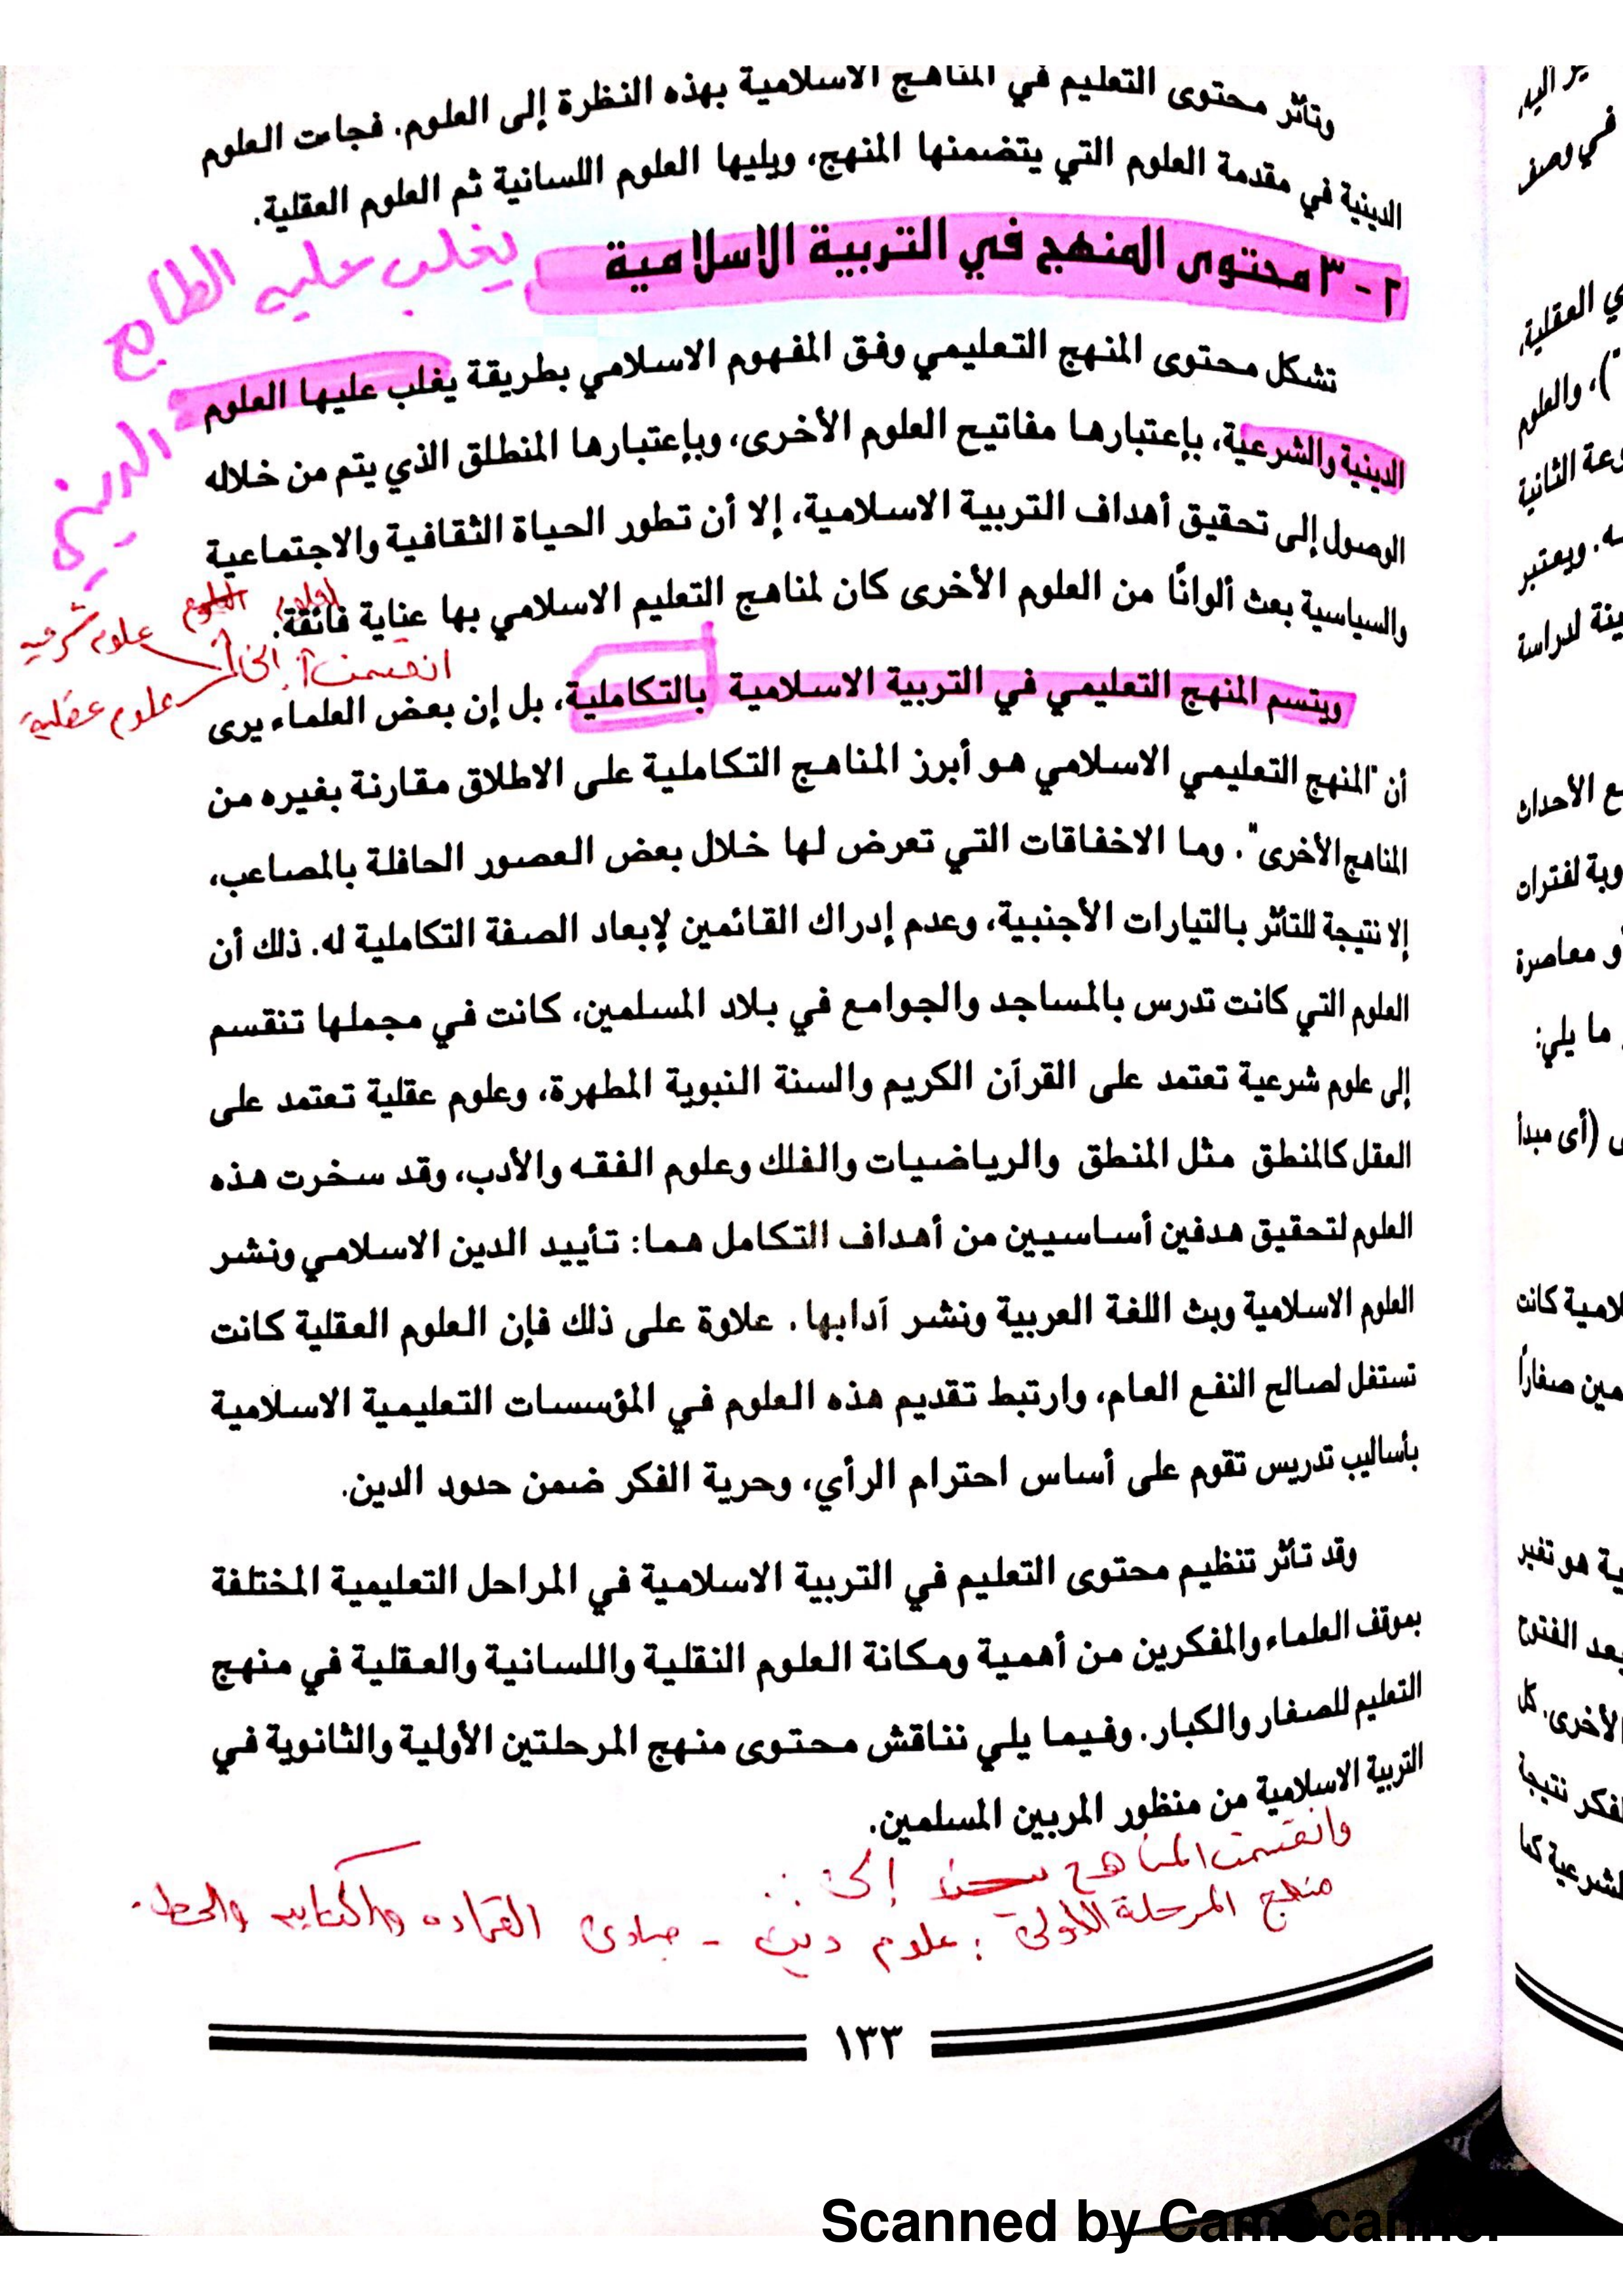 وتأثر محتوى التعليم في المناهج الاسلامية بهذه النظرة إلى العلوم. فجاءت العلوم
الدينية في مقدمة العلوم التي يتضمنها المنهج، ويليها العلوم اللسانية ثم العلوم العقلية.
٢ - ٣ محتوى المنهج في التربية الاسلامية
يغلب عليه الطابع
الديني
تشكل محتوى المنهج التعليمي وفق المفهوم الاسلامي بطريقة يغلب عليها العلوم
الدينية والشرعية، بإعتبارها مفاتيح العلوم الأخرى، وبإعتبارها المنطلق الذي يتم من خلاله
الوصول إلى تحقيق أهداف التربية الاسلامية، إلا أن تطور الحياة الثقافية والاجتماعية
والسياسية بعث ألوانًا من العلوم الأخرى كان لمناهج التعليم الاسلامي بها عناية فائقة.
العلوم
انقسمت إلى
علوم شرعيه
علوم عقلية
ويتسم المنهج التعليمي في التربية الاسلامية بالتكاملية، بل إن بعض العلماء يرى
أن "المنهج التعليمي الاسلامي هو أبرز المناهج التكاملية على الاطلاق مقارنة بغيره من
المناهج الأخرى". وما الاخفاقات التي تعرض لها خلال بعض العصور الحافلة بالمصاعب،
إلا نتيجة للتأثر بالتيارات الأجنبية، وعدم إدراك القائمين لإبعاد الصفة التكاملية له. ذلك أن
العلوم التي كانت تدرس بالمساجد والجوامع في بلاد المسلمين، كانت في مجملها تنقسم
إلى علوم شرعية تعتمد على القرآن الكريم والسنة النبوية المطهرة، وعلوم عقلية تعتمد على
العقل كالمنطق مثل المنطق والرياضيات والفلك وعلوم الفقه والأدب، وقد سخرت هذه
العلوم لتحقيق هدفين أساسيين من أهداف التكامل هما: تأييد الدين الاسلامي ونشر
العلوم الاسلامية وبث اللغة العربية ونشر آدابها. علاوة على ذلك فإن العلوم العقلية كانت
تستغل لصالح النفع العام، وارتبط تقديم هذه العلوم في المؤسسات التعليمية الاسلامية
بأساليب تدريس تقوم على أساس احترام الرأي، وحرية الفكر ضمن حدود الدين.
وقد تأثر تنظيم محتوى التعليم في التربية الاسلامية في المراحل التعليمية المختلفة
بموقف العلماء والمفكرين من أهمية ومكانة العلوم النقلية واللسانية والعقلية في منهج
التعليم للصغار والكبار. وفيما يلي نناقش محتوى منهج المرحلتين الأولية والثانوية في
التربية الاسلامية من منظور المربين المسلمين.
وانقسمت المناهج إلى :
منهج المرحلة الأولى : علوم دين - مبادئ القراءه والكتابه والخط.
١٣٣
ير اليه
في وصف
ي العقلية
")، والعلوم
وعة الثانية
ه. ويعتبر
ينة لدراسة
ع الأحداث
وبة لفترات
و معاصرة
ما يلي:
ى (أى مبدأ
لامية كانت
مين صغاراً
ية هو تغير
عد الفتوح
الأخرى. كل
لفكر نتيجة
لشرعية كما
Scanned by CamScanner